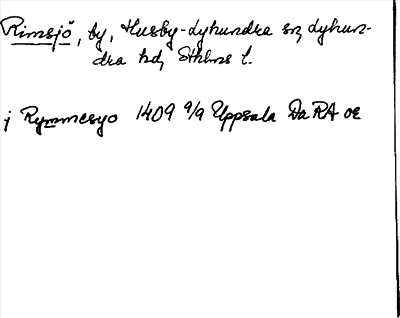 Rimsjö, by, Husby-Lyhundra sn, Lyhun-
dra hd, Sthlms l.
j Rymmesyo 1409 9/9 Uppsala Da RA oe